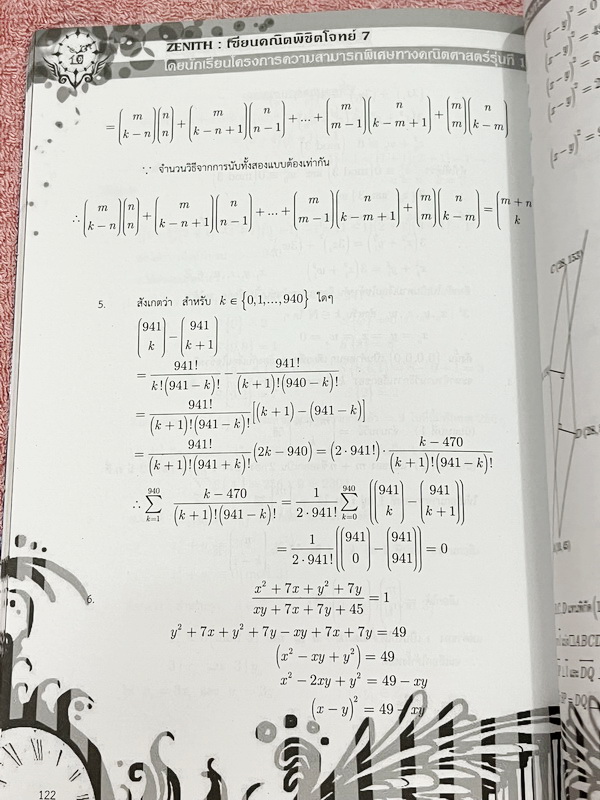 ZENITH : เซียนคณิตพิชิตโจทย์ 7
โดยนักเรียนโครงการความสามารถพิเศษทางคณิตศาสตร์รุ่นที่ 1
10
= \binom{m}{k-n}\binom{n}{n} + \binom{m}{k-n+1}\binom{n}{n-1} + ... + \binom{m}{m-1}\binom{n}{k-m+1} + \binom{m}{m}\binom{n}{k-m}
∵ จำนวนวิธีจากการนับทั้งสองแบบต้องเท่ากัน
∴ \binom{m}{k-n}\binom{n}{n} + \binom{m}{k-n+1}\binom{n}{n-1} + ... + \binom{m}{m-1}\binom{n}{k-m+1} + \binom{m}{m}\binom{n}{k-m} = \binom{m+n}{k}
5. สังเกตว่า สำหรับ k ∈ {0,1,...,940} ใดๆ
\binom{941}{k} - \binom{941}{k+1}
= \frac{941!}{k!(941-k)!} - \frac{941!}{(k+1)!(940-k)!}
= \frac{941!}{(k+1)!(941-k)!}[(k+1)-(941-k)]
= \frac{941!}{(k+1)!(941+k)!}(2k-940) = (2·941!)·\frac{k-470}{(k+1)!(941-k)!}
∴ \sum_{k=1}^{940} \frac{k-470}{(k+1)!(941-k)!} = \frac{1}{2·941!}\sum_{k=0}^{940}\left(\binom{941}{k} - \binom{941}{k+1}\right)
= \frac{1}{2·941!}\left(\binom{941}{0} - \binom{941}{941}\right) = 0
6. \frac{x²+7x+y²+7y}{xy+7x+7y+45} = 1
y²+7x+y²+7y-xy+7x+7y = 49
(x²-xy+y²) = 49
x²-2xy+y² = 49-xy
(x-y)² = 49-xy
122